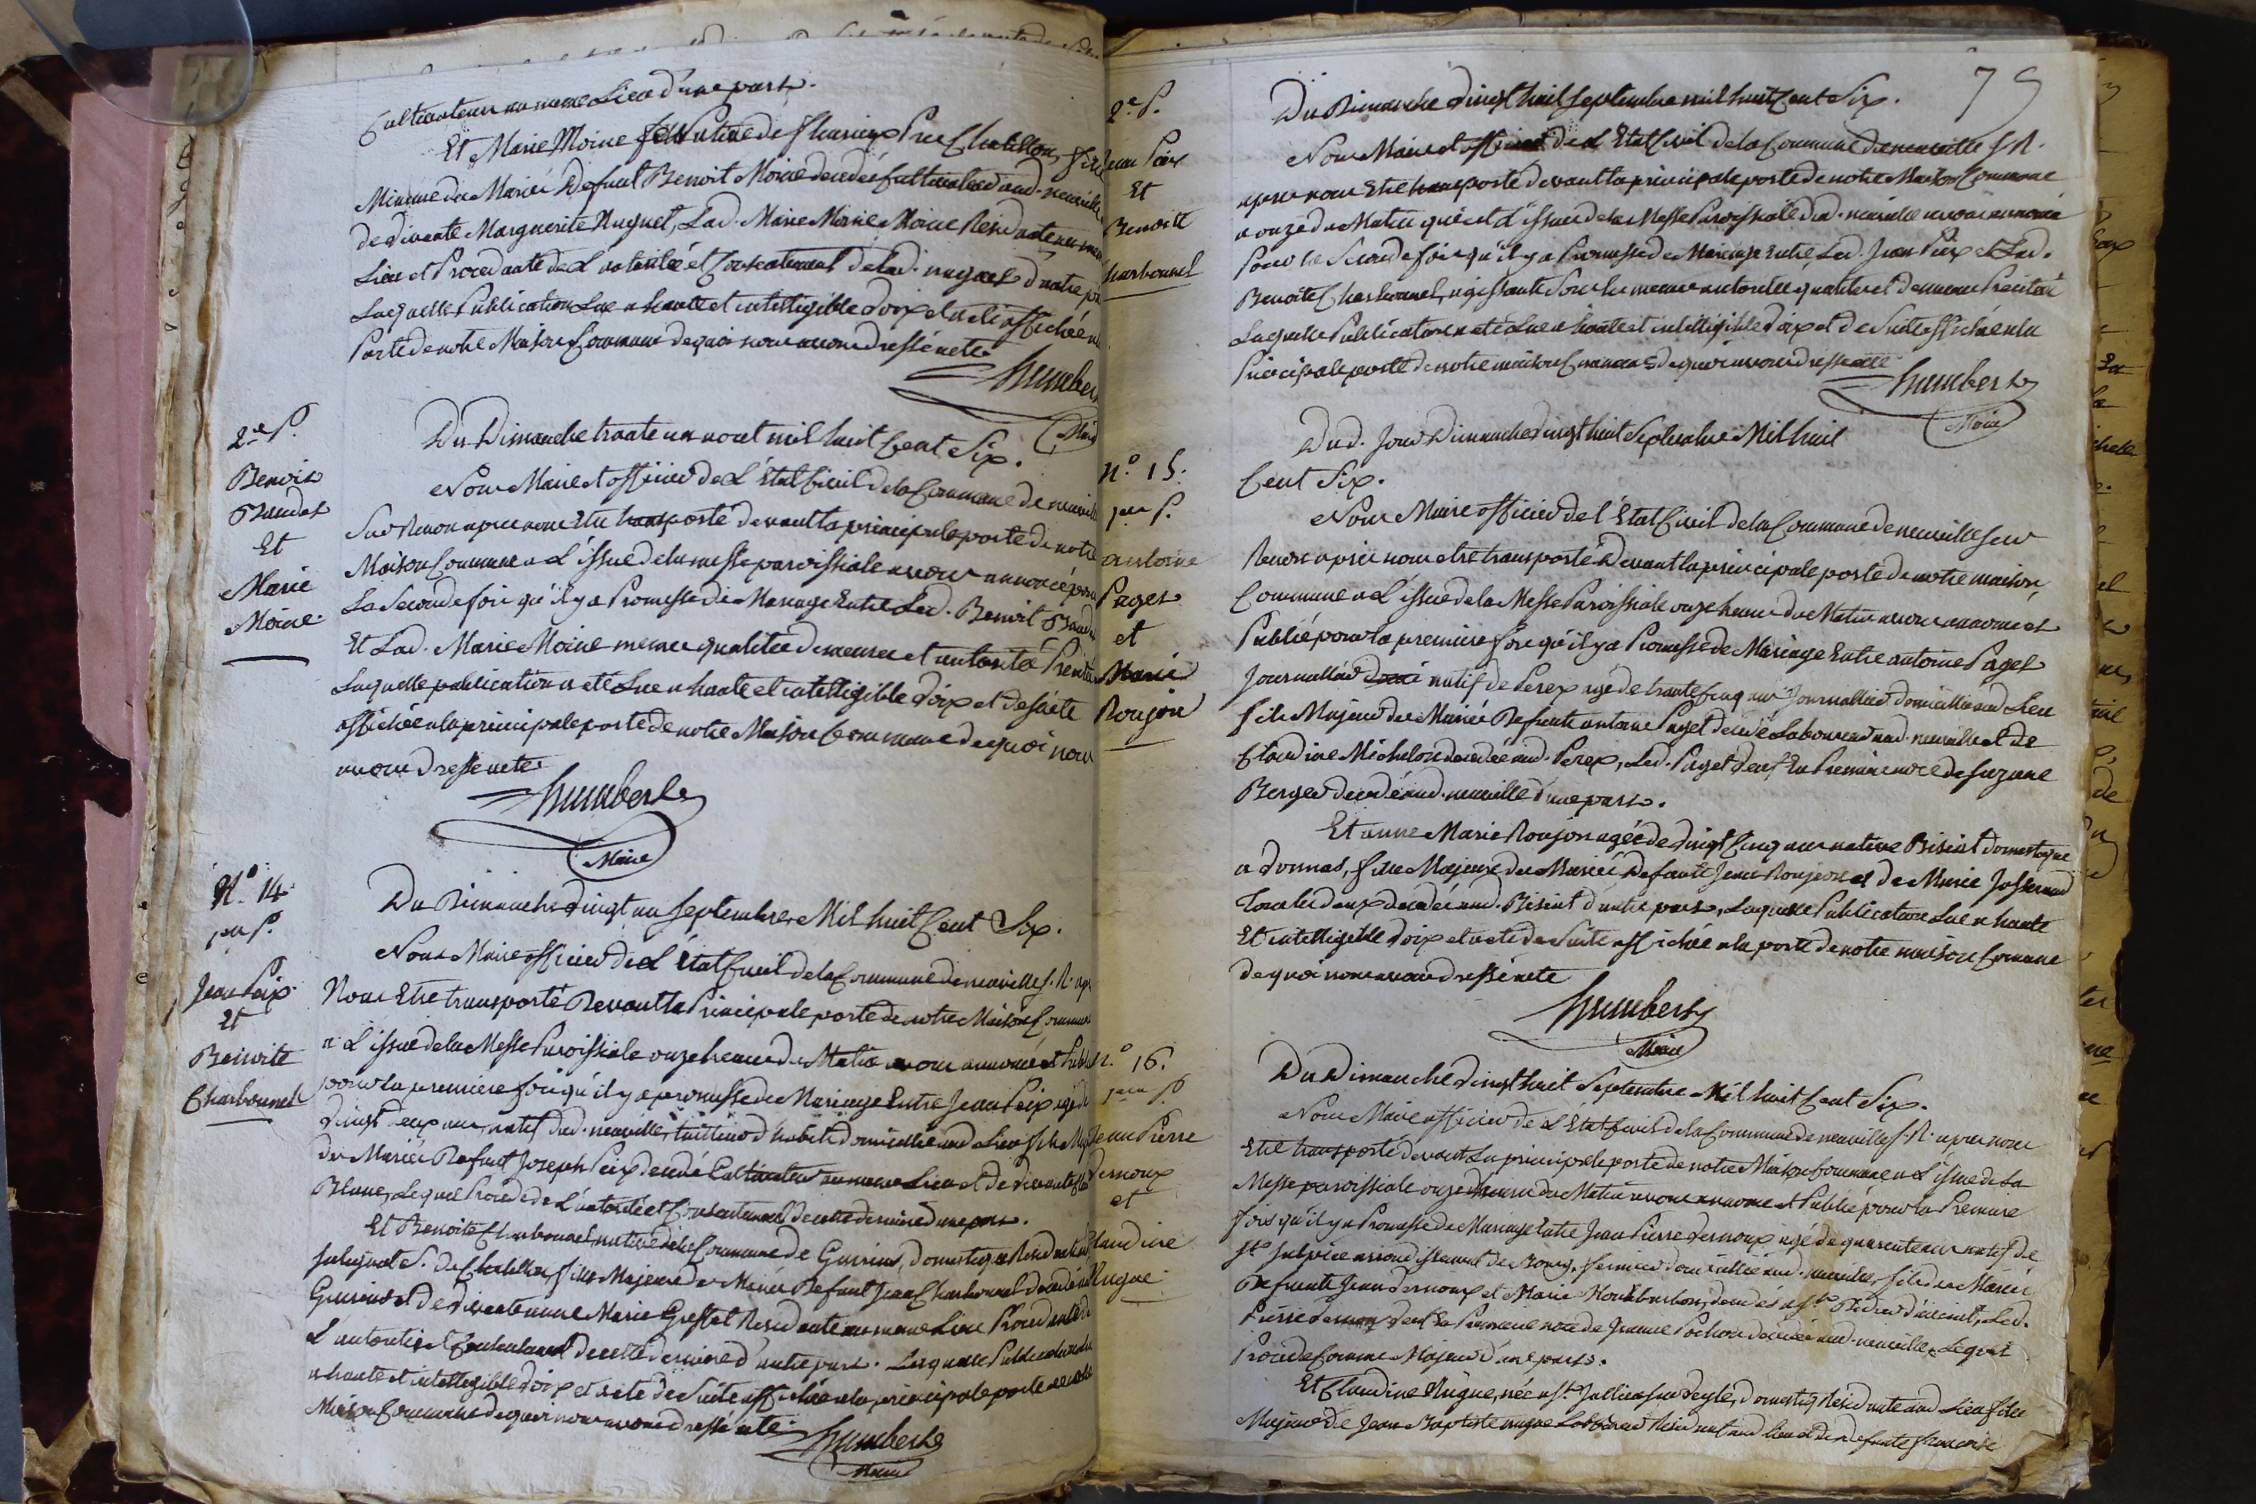 Cultivateur au meme Lieu d'une part.
Et Marie Moine native de Sharieux Pres Chatillon, fille
Mineure du Marié Defunt Benoit Moine decedé Cultivateur aud. neuville
de vivante Marguerite Nuguet, Lad. Marie Moine Residante au meme
Lieu et Procedante de L'autorité et Consentement de lad. nuguet d'autre part
Laquelle Publication Lue a haute et intelligible voix et a été affichée a la
Porte de notre Maison Commune de quoi nous avons dressé acte
Humbert
Maire
2e P.
Benoit
Baudet
Et
Marie
Moine
Du Dimanche trente un aout mil huit Cent Six.
Nous Maire et officier de L'état Civil de la Commune de neuville
Sur Renon apres nous Etre transporté devant la principale porte de notre
Maison Commune a L'issue de la messe paroissiale avons annoncé pour
La Seconde fois qu'il y a Promesse de Mariage Entre Led. Benoit Baudet
Et Lad. Marie Moine meme qualitée demeure et autorité Precitée
Laquelle publication a été Lue a haute et intelligible voix et de suite
affichée a la principale porte de notre Maison Commune de quoi nous
avons dressé acte
Humbert
Maire
N° 14
1ere P.
Jean Peix
Et
Benoite
Charbonnel
Du Dimanche vingt un Septembre Mil huit Cent Six.
Nous Maire officier de L'état Civil de la Commune de neuville S. R. apres
Nous Etre transporté Devant la Principale porte de notre Maison Commune
a L'issue de la Messe Paroissiale onze heures du Matin avons annoncé et Publié
pour la premiere fois qu'il y a promesse de Mariage Entre Jean Peix agé de
vingt deux ans, natif dud. neuville, tailleur d'habits domicillié aud. Lieu fils Majeur
du Marié Defunt Joseph Peix decedé Cultivateur au meme Lieu et de vivante
Blanc, Lequel Procede de L'autorité et Consentement de cette derniere d'une part.
Et Benoite Charbonnel native de la Commune de Guerins, domestique Residante
P. de Chatillon fille Majeure du Marié Defunt Jean Charbonnel decedé aud.
Guerins et de vivante Marie Greffet Residante au meme Lieu Procedante de
L'autorité et Consentement de cette derniere d'autre part. Laquelle Publication Lue
a haute et intelligible voix et a été de Suite affichée a la principale porte de notre
Maison Commune de quoi nous avons dressé acte
Humbert
Maire
75
2e P.
Jean Peix
Et
Benoite
Charbonnel
Du Dimanche vingt huit Septembre mil huit Cent Six.
Nous Maire et officier de L'Etat Civil de la Commune de neuville S. R.
apres nous Etre transporté devant la principale porte de notre Maison Commune
a onze du Matin qui est L'issue de la Messe Paroissiale dud. neuville avons annoncé
Pour la Seconde fois qu'il y a Promesse de Mariage Entre Led. Jean Peix et Lad.
Benoite Charbonnel, agissante Sous la meme autorité qualité et demeure Precitée
Laquelle Publication a été Lue a haute et intelligible voix et de Suite affichée a la
Principale porte de notre maison Commune de quoi avons dressé acte
Humbert
Maire
N° 15.
1ere P.
antoine
Paget
et
Marie
Roujon
Dud. Jour Dimanche vingt huit Septembre Mil huit
Cent Six.
Nous Maire officier de l'État Civil de la Commune de neuville Sur
Renon apres nous etre transporté Devant la principale porte de notre maison
Commune a L'issue de la Messe Paroissiale onze heures du Matin avons annoncé et
Publié pour la premiere fois qu'il y a Promesse de Mariage Entre antoine Paget
Journallier natif de Perex agé de trente Cinq ans Journallier domicillié aud. Lieu
fils Majeur du Marié Defunte antoine Paget decedé Laboureur aud. neuville et de
Claudine Michelon decedée aud. Perex, Led. Paget veuf En Premiere noce de Suzanne
Berger decedée aud. neuville d'une part.
Et anne Marie Roujon agée de vingt Cinq ans native Bisiat domestique
a vonnas, fille Majeure du Marié Defunte Jean Roujon et de Marie Josserand
Tous les deux decedés aud. Bisiat d'autre part, Laquelle Publication Lue a haute
Et intelligible voix et a été de Suite affichée a la porte de notre maison Commune
de quoi nous avons dressé acte
Humbert
Maire
N° 16.
1ere P.
Jean Pierre
vernoux
et
Claudine
Nugue
Du Dimanche vingt huit Septembre Mil huit Cent Six.
Nous Maire officier de L'Etat Civil de la Commune de neuville S. R. apres nous
Etre transporté devant La principale porte de notre Maison Commune a L'issue de La
Messe paroissiale onze heures du Matin avons annoncé et Publié pour la Premiere
fois qu'il y a Promesse de Mariage Entre Jean Pierre vernoux agé de quarente ans natif de
St. Sulpice arrondissement de Bourg, fermier domicillié aud. neuville, fils du Marié
Defunte Jean vernoux et Marie decedés a St. Didier d'aussiat, Led.
Pierre vernoux veuf En Premiere noce de Jeanne Pochon decedée aud. neuville, Lequel
Procede Comme Majeur d'une part.
Et Claudine Nugue, née a St. Jullien sur veyle, domestique Residante aud. Lieu fille
Majeure de Jean Baptiste nugue Laboureur Residant aud. lieu et de defunte françoise